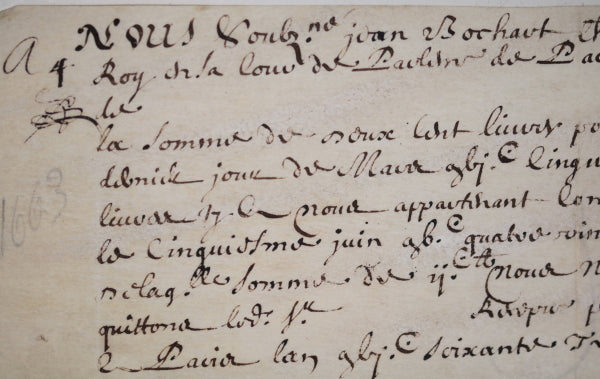 A
NOUS Soubz.ne jean Bochart
4 Roy en sa Cour de Parlem.
de
la somme de Deux Cent livres
dernier jour de Mars gbj.C Cinqu
livres Nous appartenant
le Cinquiesme juin gb.C quatre vin
Delaq.lle somme de ij.C Nous
quittons led. sr
Paris lan gbj.C soixante
1663